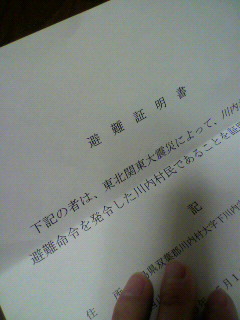 避難証明書
下記の者は、東北関東大震災によって、川内
避難命令を発令した川内村民であることを証
記
住所
県双葉郡川内村大字下川内
月1